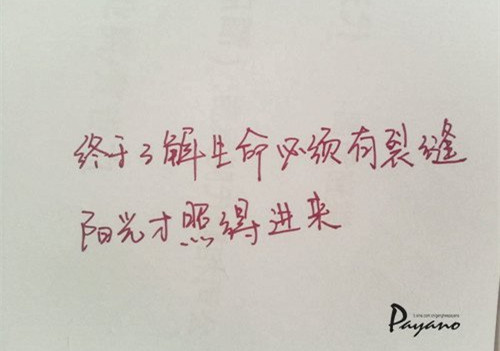 终于了解生命必须有裂缝
阳光才照得进来
Payano